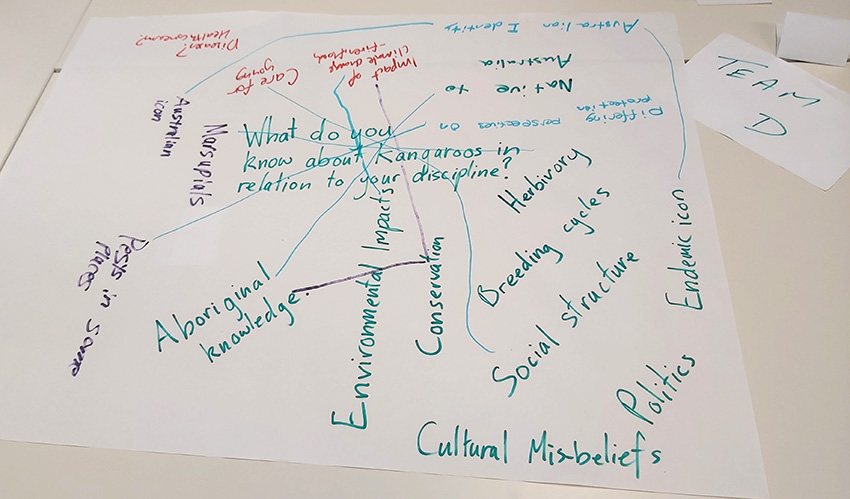 What do you
know about Kangaroos in
relation to your discipline?
Australian Identity
Diseases?
Health concerns?
Care for
young
Impact of
Climate change
- Fires/floods
Native to
Australia
Differing
perspectives on
protection
Australian
icon
Marsupials
Pests in some
places
Aboriginal
knowledge
Environmental Impacts
Conservation
Herbivory
Breeding cycles
Social structure
Endemic icon
Politics
Cultural Mis-beliefs
TEAM
D